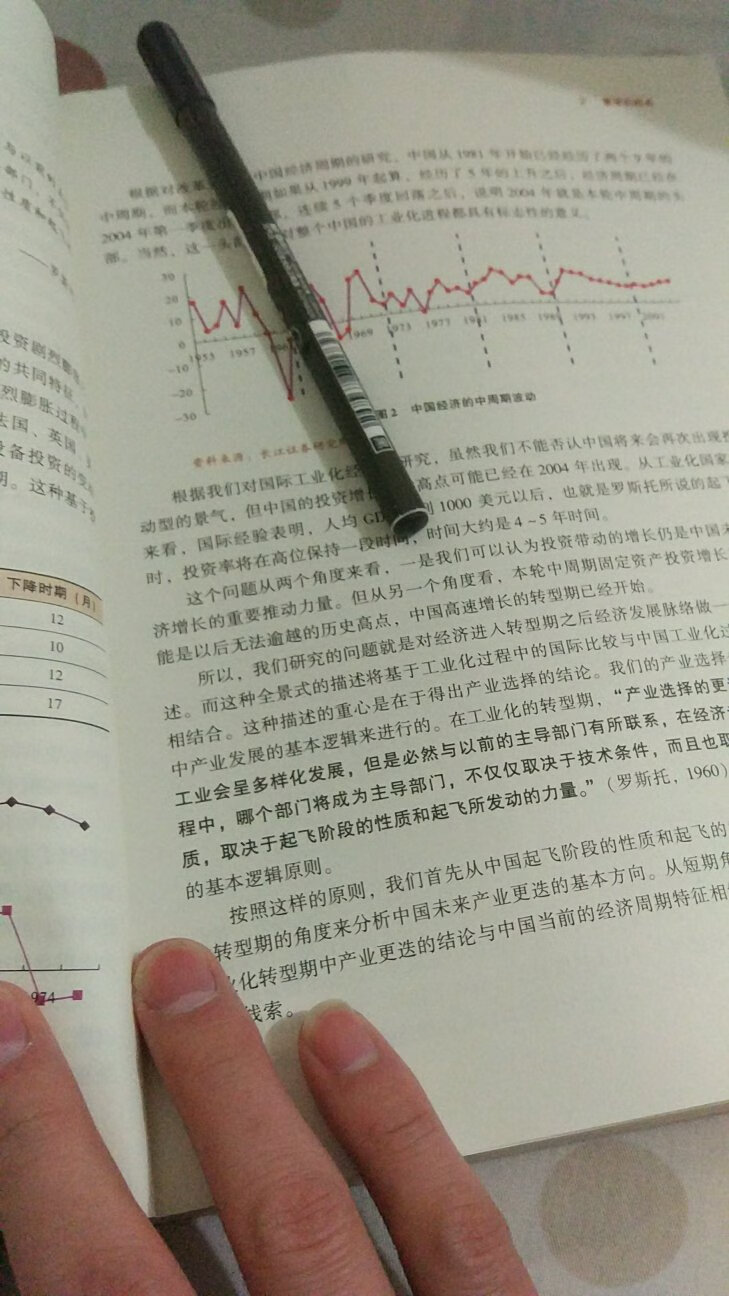 投资剧烈膨胀
的共同特征
烈膨胀过程
法国、英国
设备投资的
明。这种基于
下降时期（月）
12
10
12
17
974
根据对改革 中国经济周期的研究，中国从 1981 年开始已经经历了两个 9 年的
中周期，而本轮 如果从 1999 年起算，经历了 5 年的上升之后，经济周期已经在
2004 年第一季度出 ，连续 5 个季度回落之后，说明 2004 年就是本轮中周期的头
部。当然，这一头部 对整个中国的工业化进程都具有标志性的意义。
30
20
10
0
-10
-20
-30
1953 1957 1969 1973 1977 1981 1985 1989 1993 1997 2001
图2 中国经济的中周期波动
资料来源：长江证券研究
根据我们对国际工业化经 研究，虽然我们不能否认中国将来会再次出现投
动型的景气，但中国的投资增长 高点可能已经在 2004 年出现。从工业化国家
来看，国际经验表明，人均 GD 到 1000 美元以后，也就是罗斯托所说的起飞
时，投资率将在高位保持一段时间，时间大约是 4～5 年时间。
这个问题从两个角度来看，一是我们可以认为投资带动的增长仍是中国未
济增长的重要推动力量。但从另一个角度看，本轮中周期固定资产投资增长
能是以后无法逾越的历史高点，中国高速增长的转型期已经开始。
所以，我们研究的问题就是对经济进入转型期之后经济发展脉络做一
述。而这种全景式的描述将基于工业化过程中的国际比较与中国工业化过
相结合。这种描述的重心是在于得出产业选择的结论。我们的产业选择
中产业发展的基本逻辑来进行的。在工业化的转型期，“产业选择的更
工业会呈多样化发展，但是必然与以前的主导部门有所联系，在经济
程中，哪个部门将成为主导部门，不仅仅取决于技术条件，而且也取
质，取决于起飞阶段的性质和起飞所发动的力量。”（罗斯托，1960）
的基本逻辑原则。
按照这样的原则，我们首先从中国起飞阶段的性质和起飞的
转型期的角度来分析中国未来产业更迭的基本方向。从短期角
业化转型期中产业更迭的结论与中国当前的经济周期特征相
线索。